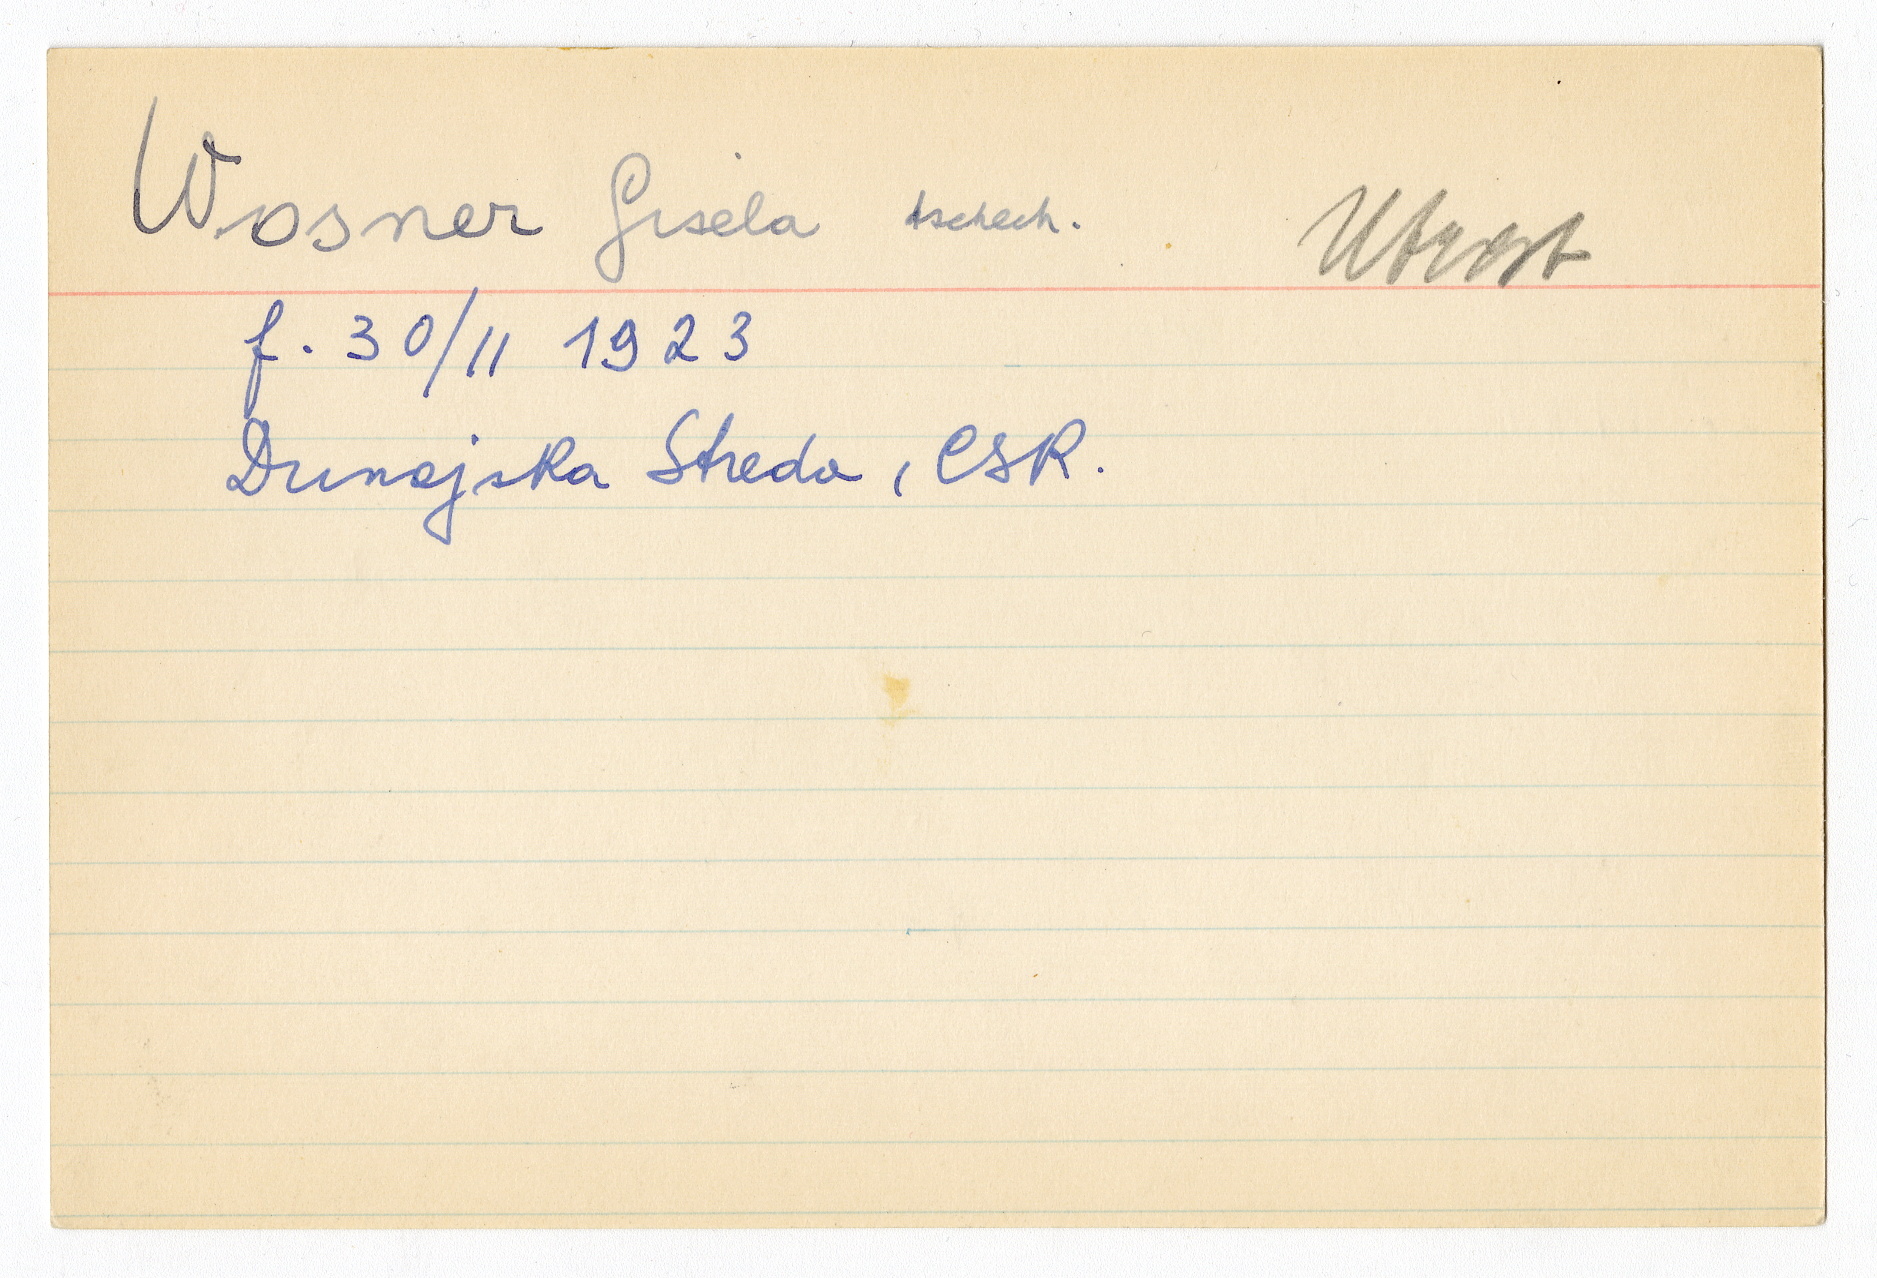 Wosner Gisela tschech. Utrest
f. 30/11 1923
Dunajska Streda, CSR.